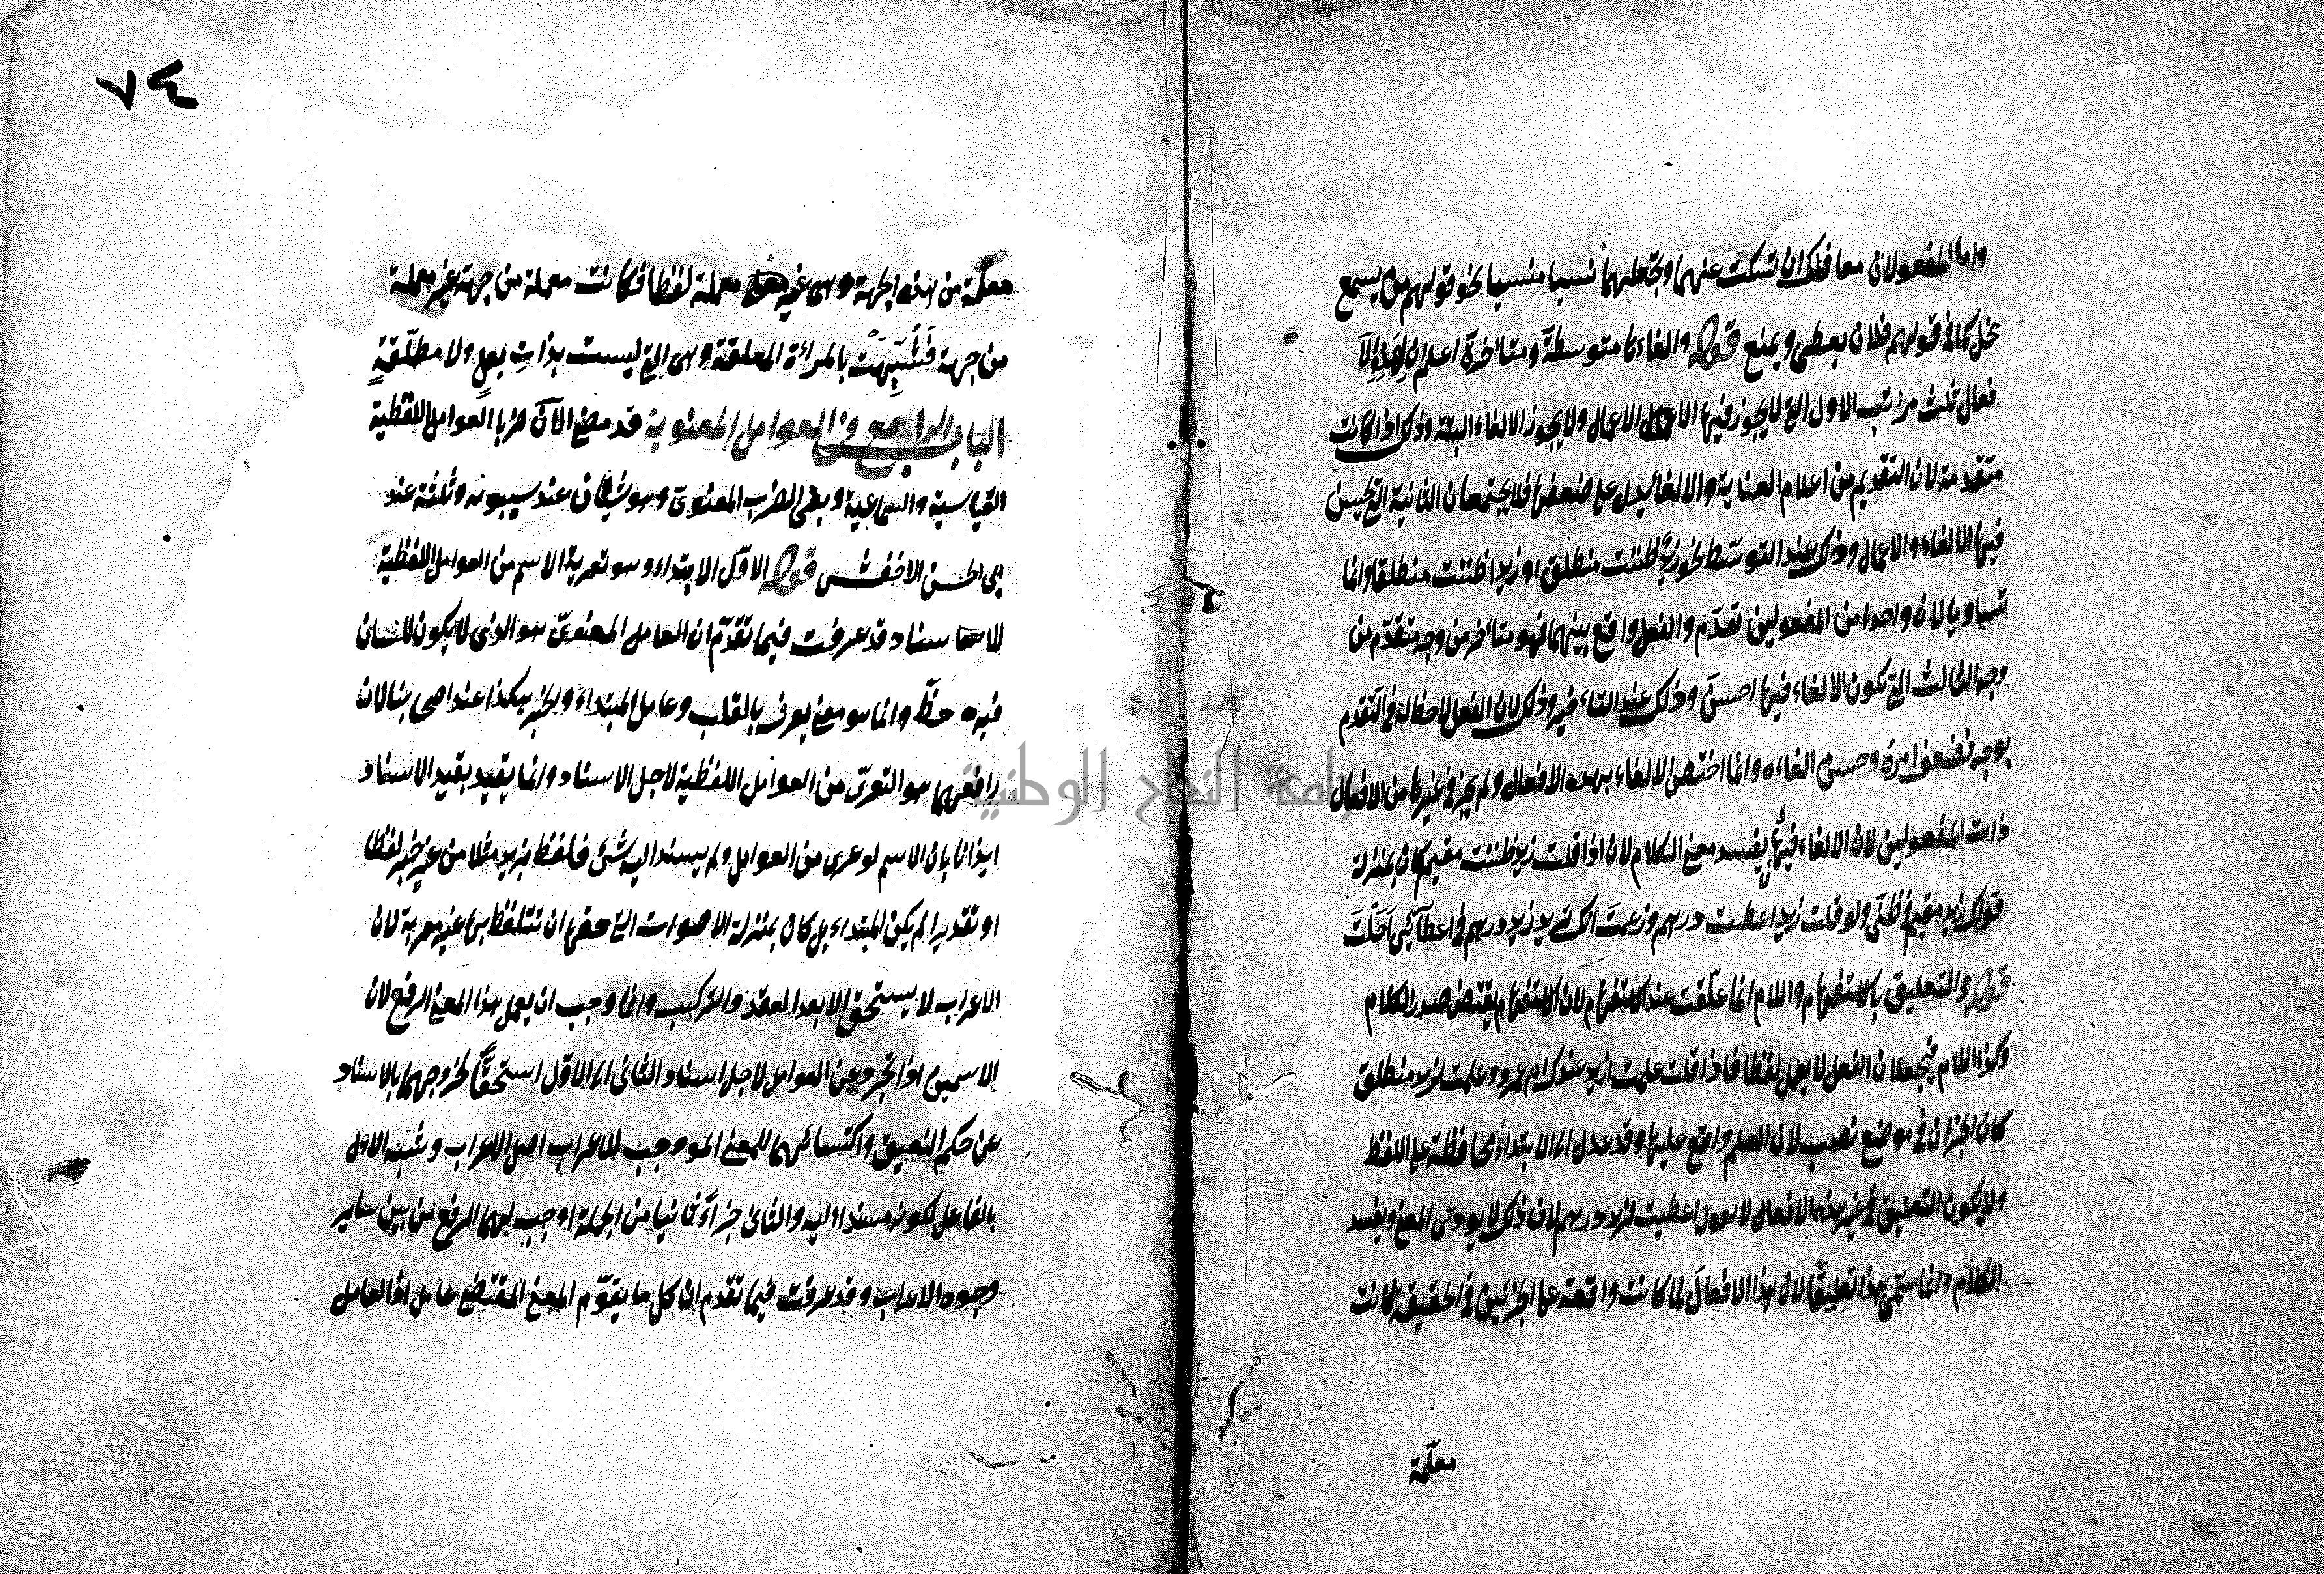 واما المفعولان معا فلك ان تسكت عنهما وتجعلهما نسيا منسيا نحو قولهم من يسمع
يخل كما في قولهم فلان يعطي ويمنع قوله والغاءها متوسطة ومتأخرة اعلم ان لهذه الا
فعال ثلث مراتب الاول التي لا يجوز فيها الا الاعمال ولا يجوز الالغاء البتة وذلك اذا كانت
متقدمة لان التقديم من اعلام العناية والالغاء يدل على ضعفها فلا يجتمعان الثانية التي يحسن
فيها الالغاء والاعمال وذلك عند التوسط نحو زيد ظننت منطلق او زيدا ظننت منطلقا وانما
تساويا لان واحدا من المفعولين تقدم والفعل واقع بينهما فهو متأخر من وجه متقدم من
وجه الثالث التي تكون الالغاء فيها احسن وذلك عند التاء فيه وذلك لان الفعل لا حظ له في التقدم
بوجه فضعف امره وحسن الغاءه وانما اختص الالغاء بهذه الافعال ولم يجز في غيرها من الافعال
ذات المفعولين لان الالغاء فيها يفسد معنى الكلام لان اذا قلت زيد ظننت مقيم كان بمنزلة
قولك زيد مقيم في ظني ولو قلت زيد اعطيت درهم وزعمت انك تريد زيد درهم في اعطآئي احلت
قوله والتعليق بالاستفهام واللام انما علقت عند الاستفهام لان الاستفهام يقتضي صدر الكلام
وكذا اللام فيجعلان الفعل لا يعمل لفظا فاذا قلت علمت ازيد عندك ام عمرو وعلمت لزيد منطلق
كان الجزءان في موضع نصب لان العلم واقع عليها وقد عدل الى الابتداء محافظة على اللفظ
ولا يكون التعليق في غير هذه الافعال لا تقول اعطيت لزيد درهم لان ذلك لا يؤدى المعنى ويفسد
الكلام وانما سمى هذا تعليقا لان هذا الافعال لما كانت واقعة على الجزئين في الحقيقة كانت
معلمة
٧٤
معلمة من هذه الجهة وهى غير معملة لفظا فكانت معملة من جهة غير معملة
من جهة فشبهت بالمرأة المعلقة وهى التي ليست بذات بعل ولا مطلقة
الباب الرابع في العوامل المعنوية قد مضى الآن ضربا العوامل اللفظية
القياسية والسماعية وبقي الضرب المعنوى وهو شيئان عند سيبويه وثلثة عند
ابى الحسن الاخفش قوله الاول الابتداء وهو تعرية الاسم من العوامل اللفظية
للاسناد قد عرفت فيما تقدم ان العامل المعنوى هو الذى لا يكون للسان
فيه حظ وانما هو معنى يعرف بالقلب وعامل المبتداء والخبر هكذا عند اصحابنا لان
رافعهما هو التعرى من العوامل اللفظية لاجل الاسناد وانما يقيد بقيد الاسناد
ايذانا بان الاسم لو عرى من العوامل ولم يسند اليه شئ فلفظ بزيد مثلا من غير خبر لفظا
او تقديرا لم يكن المبتداء بل كان بمنزلة الاصوات التي حقها ان تتلفظ بها غير معربة لان
الاعراب لا يستحق الا بعد العقد والتركيب وانما وجب ان يعمل هذا المعنى الرفع لان
الاسمين اذا تجردا عن العوامل لاجل اسناد الثانى الى الاول استحقا لخروجهما بالاسناد
عن حكم النعيق واكتسائهما للمعنى الموجب للاعراب اصل الاعراب وشبه الاول
بالفاعل لكونه مسندا اليه والثانى جزاء ثانيا من الجملة اوجب لهما الرفع من بين ساير
وجوه الاعراب وقد عرفت فيما تقدم ان كل ما يقوم المعنى المقتضى عامل اذ العامل
جامعة النجاح الوطنية